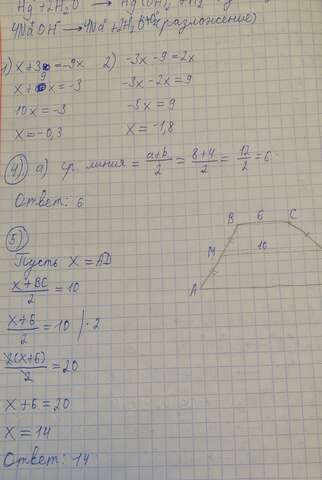 Hg + 2H₂O → Hg(OH)₂
4NaOH → 4Na + 2H₂O (разложение)
1) x+3 = -9x 2) -3x -9 = 2x
x + 9x = -3 -3x -2x = 9
10x = -3 -5x = 9
x = -0,3 x = -1,8
4) а) ср. линия = (a+b)/2 = (8+4)/2 = 12/2 = 6
Ответ: 6
5)
Пусть x = AD
(x+BC)/2 = 10
(x+6)/2 = 10 | · 2
2(x+6)/2 = 20
x + 6 = 20
x = 14
Ответ: 14
B 6 C
M 10
A